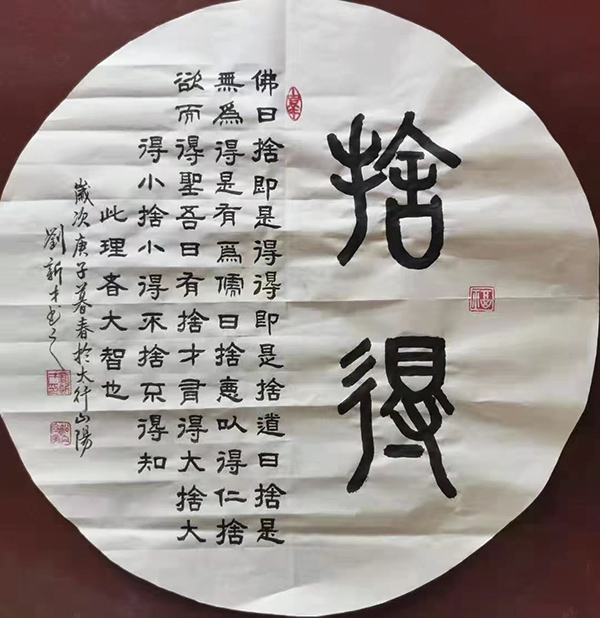 捨得
佛曰捨即是得得即是捨道曰捨是
無爲得是有爲儒曰捨惡以得仁捨
欲而得聖吾曰有捨才有得大捨大
得小捨小得不捨不得知
此理者大智也
歲次庚子暮春於太行山陽
劉新才书之